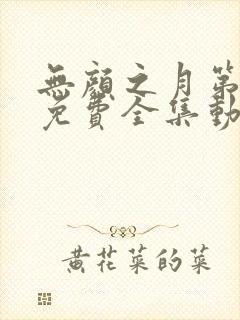 無顏之月第
免費全集動
黃花菜的菜